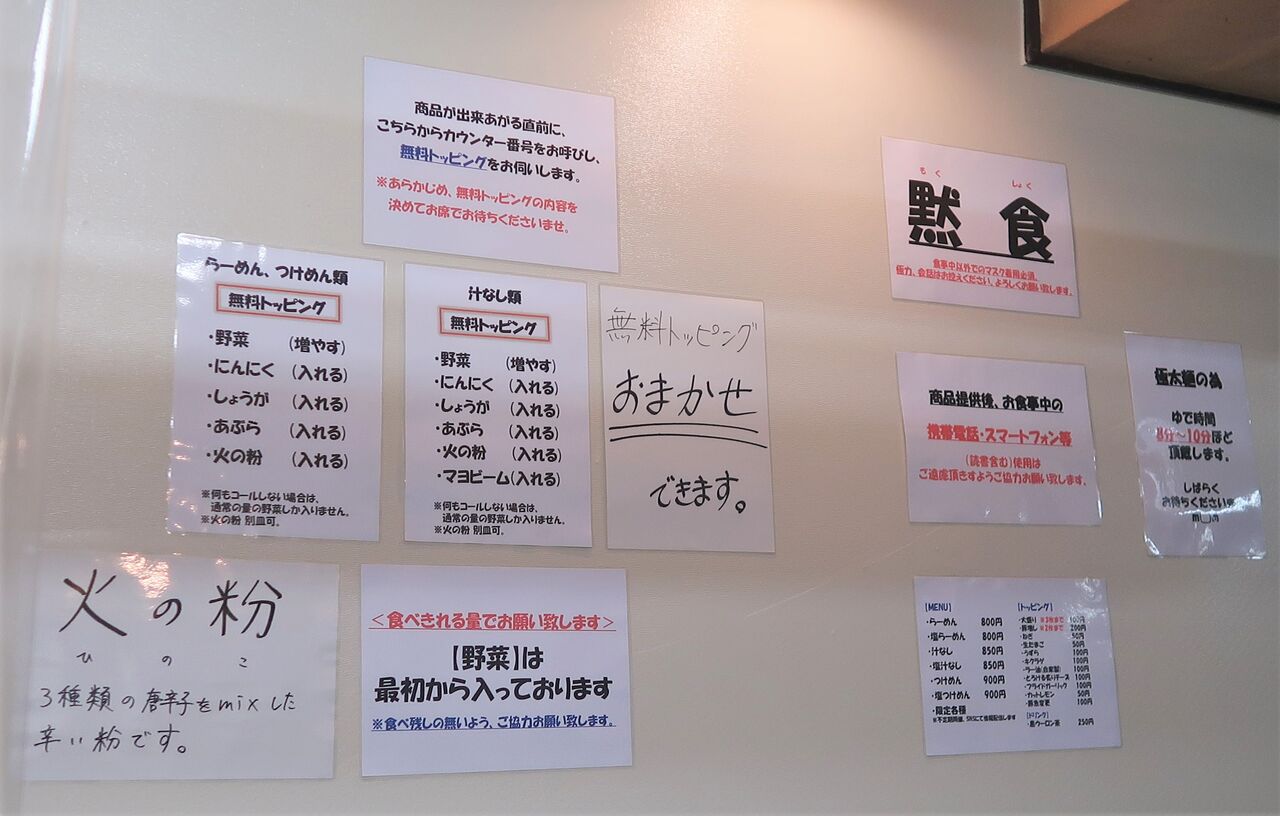 商品が出来あがる直前に、
こちらからカウンター番号をお呼びし、
無料トッピングをお伺いします。
※あらかじめ、無料トッピングの内容を
決めてお席でお待ちくださいませ。
らーめん、つけめん類
無料トッピング
・野菜 (増やす)
・にんにく (入れる)
・しょうが (入れる)
・あぶら (入れる)
・火の粉 (入れる)
※何もコールしない場合は、
通常の量の野菜しか入りません。
※火の粉 別皿可。
汁なし類
無料トッピング
・野菜 (増やす)
・にんにく (入れる)
・しょうが (入れる)
・あぶら (入れる)
・火の粉 (入れる)
・マヨビーム(入れる)
※何もコールしない場合は、
通常の量の野菜しか入りません。
※火の粉 別皿可。
無料トッピング
おまかせ
できます。
火の粉
ひのこ
3種類の唐辛子をmixした
辛い粉です。
<食べきれる量でお願い致します>
【野菜】は
最初から入っております
※食べ残しの無いよう、ご協力お願い致します。
もく しょく
黙 食
食事中以外でのマスク着用必須。
極力、会話はお控えください。よろしくお願い致します。
商品提供後、お食事中の
携帯電話・スマートフォン等
(読書含む)使用は
ご遠慮頂きすようご協力お願い致します。
極太麺の為
ゆで時間
8分～10分ほど
頂戴します。
しばらく
お待ちください
【MENU】
・らーめん 800円
・塩らーめん 800円
・汁なし 850円
・塩汁なし 850円
・つけめん 900円
・塩つけめん 900円
・限定各種
※不定期開催、SNSにて情報配信します
【トッピング】
・大盛り ※3枚まで 100円
・豚増し ※2枚まで 200円
・ねぎ 50円
・生たまご 50円
・うずら 100円
・キクラゲ 100円
・ラー油(自家製) 100円
・とろける炙りチーズ 100円
・フライドガーリック 100円
・カットレモン 50円
・豚魚変更 100円
【ドリンク】
・黒ウーロン茶 250円